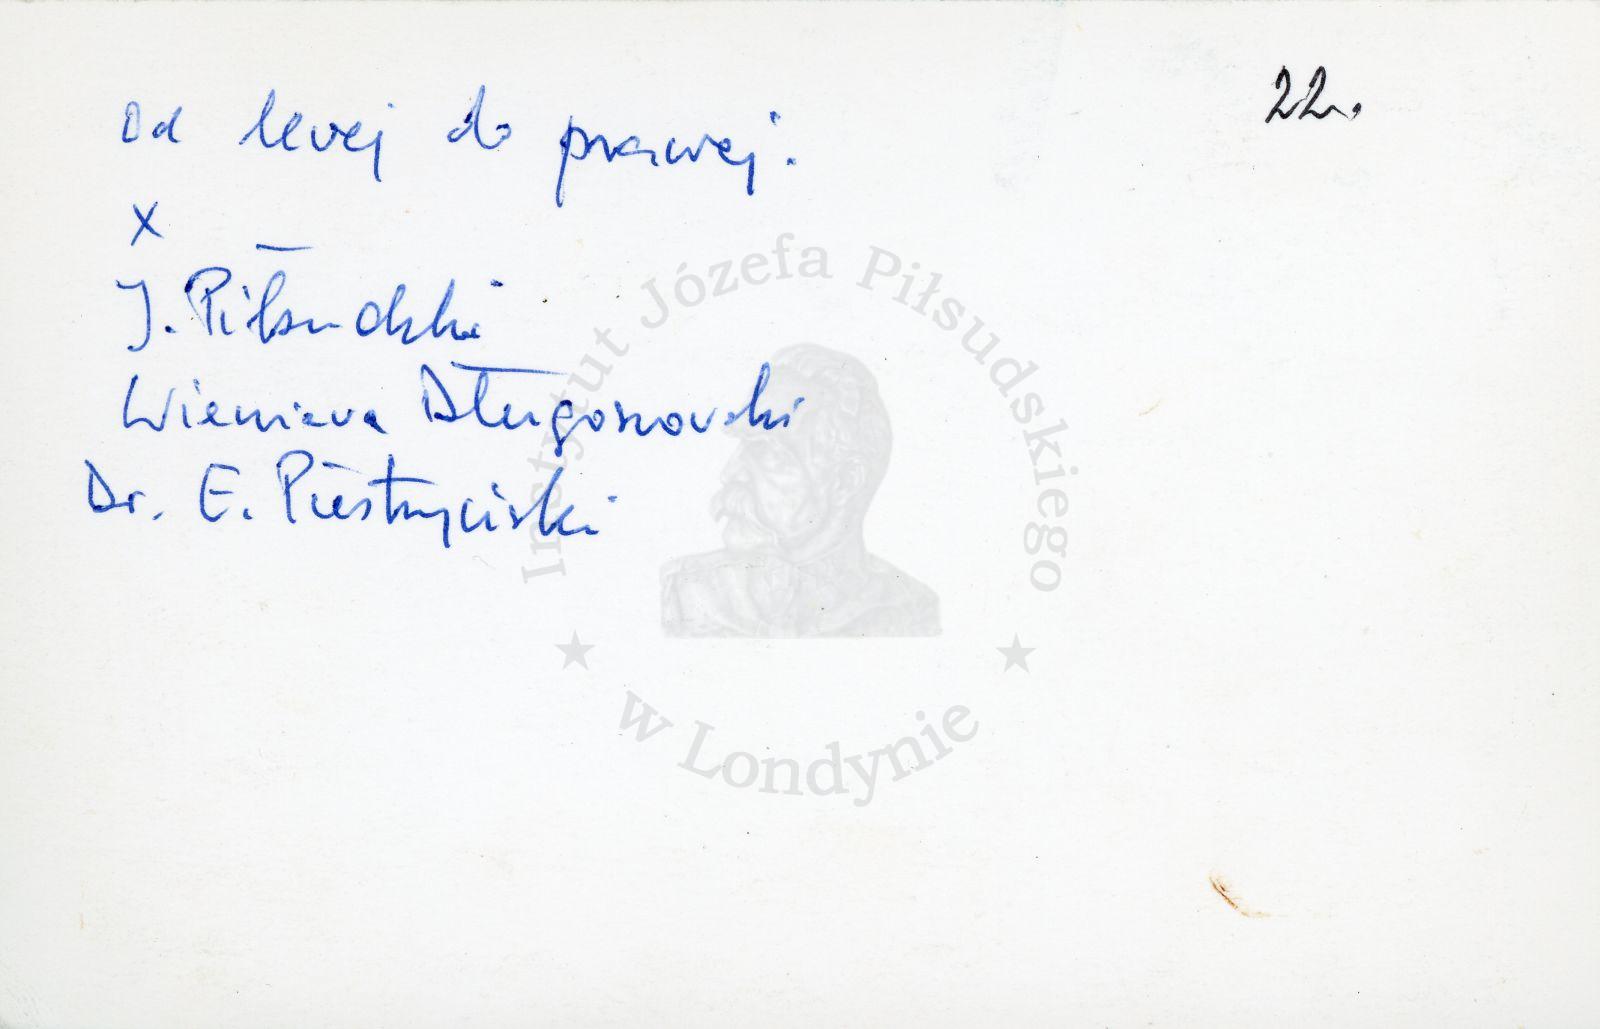 22.
Od lewej do prawej:
X
J. Piłsudski
Wieniawa Długoszowski
Dr. E. Piestrzyński
Instytut Józefa Piłsudskiego
w Londynie